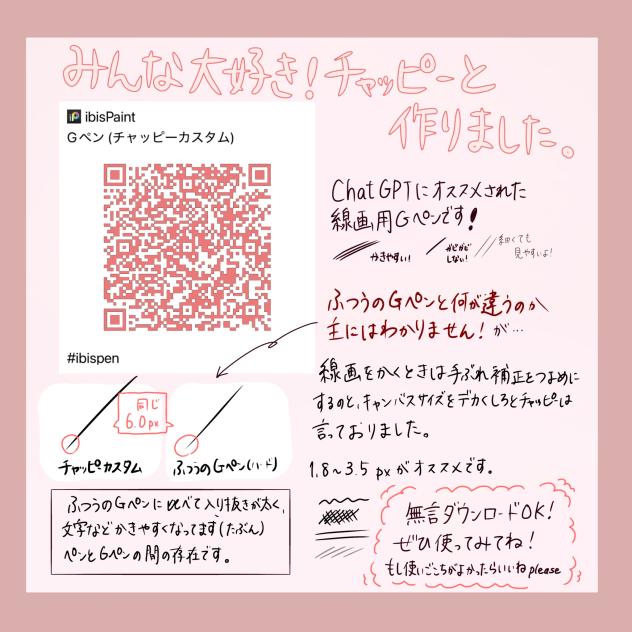 みんな大好き!チャッピーと
作りました。
ibisPaint
Gペン (チャッピーカスタム)
#ibispen
ChatGPTにオススメされた
線画用Gペンです!
かきやすい!
ガビガビ
しない!
細くても
見やすいよ!
ふつうのGペンと何が違うのか
主にはわかりません!が…
線画をかくときは手ぶれ補正をつよめに
するのと、キャンバスサイズをデカくしろとチャッピーは
言っておりました。
1.8~3.5 pxがオススメです。
同じ
6.0px
チャッピカスタム
ふつうのGペン(ハード)
ふつうのGペンに比べて入り抜きが太く、
文字などかきやすくなってます(たぶん)
ペンとGペンの間の存在です。
無言ダウンロードOK!
ぜひ使ってみてね!
もし使いごこちがよかったらいいねplease